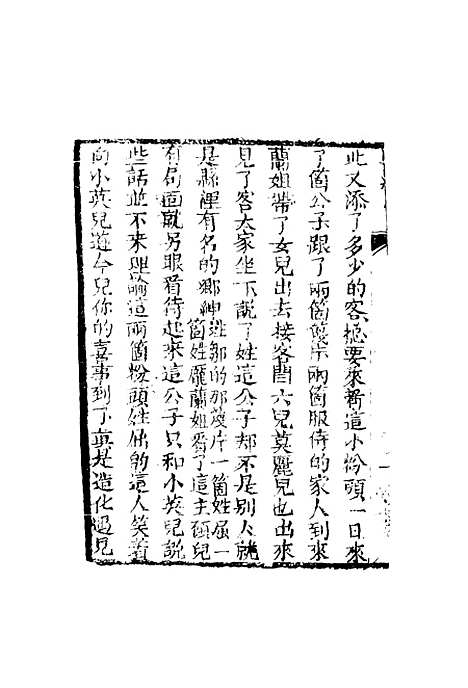 此又添了多少的客總要來看這小粉頭一日來
了箇公子跟了兩箇篾片兩箇服侍的家人到來
蘭姐帶了女兒出去接客閏六兒莫麗兒也出來
見了客大家坐下說了姓這公子却不是別人就
是縣裡有名的鄉紳姓鄒的那篾片一箇姓屈一
箇姓龐蘭姐看了這主顧兒
有局面就另眼看待起來這公子只和小英兒說
些話並不來理論這兩箇粉頭姓屈的這人笑着
向小英兒道今兒你的喜事到了真是造化遇見